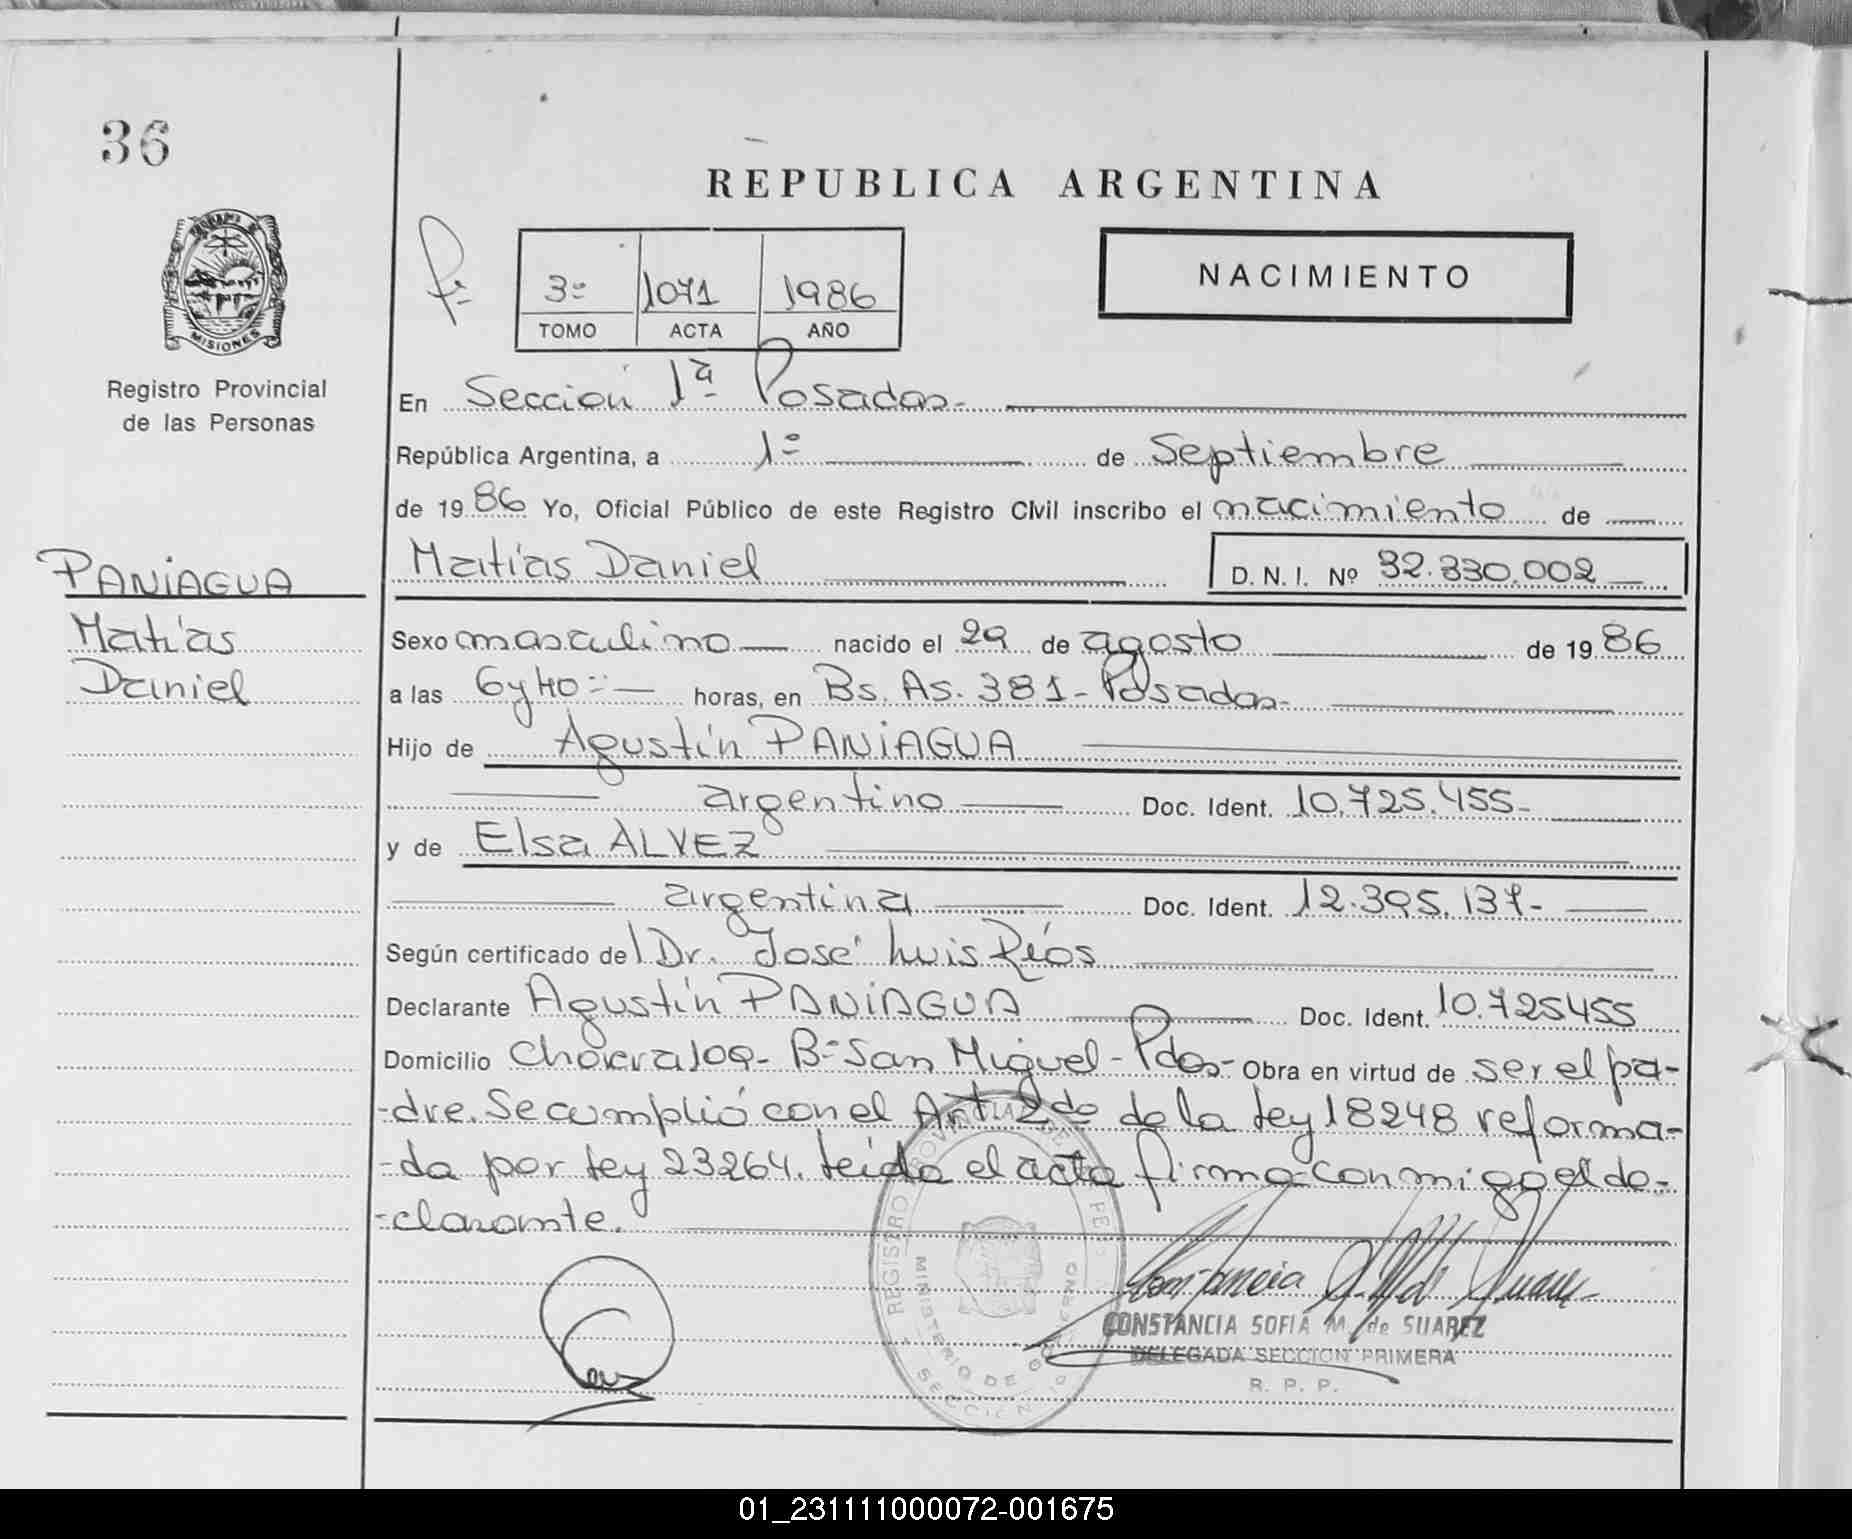 36
REPUBLICA ARGENTINA
3º 1071 1986
TOMO ACTA AÑO
NACIMIENTO
MISIONES
Registro Provincial
de las Personas
En Sección 1ª Posadas.
República Argentina, a 1º de Septiembre
de 1986 Yo, Oficial Público de este Registro Civil inscribo el nacimiento de
Matías Daniel D.N.I. Nº 32.330.002
PANIAGUA
Matías
Daniel
Sexo masculino nacido el 29 de agosto de 1986
a las 6 y 40 horas, en Bs. As. 381 - Posadas-
Hijo de Agustín PANIAGUA
argentino Doc. Ident. 10.725.455-
y de Elsa ALVEZ
argentina Doc. Ident. 12.395.137-
Según certificado del Dr. José Luis Ríos
Declarante Agustín PANIAGUA Doc. Ident. 10.725455
Domicilio Chacra 109- Bº San Miguel - Pdas- Obra en virtud de ser el pa-
-dre. Se cumplió con el Art 2do de la Ley 18248 reforma-
-da por Ley 23264. Leída el acta firma conmigo el de-
-clarante.
CONSTANCIA SOFIA M. de SUAREZ
DELEGADA SECCION PRIMERA
R. P. P.
01_231111000072-001675